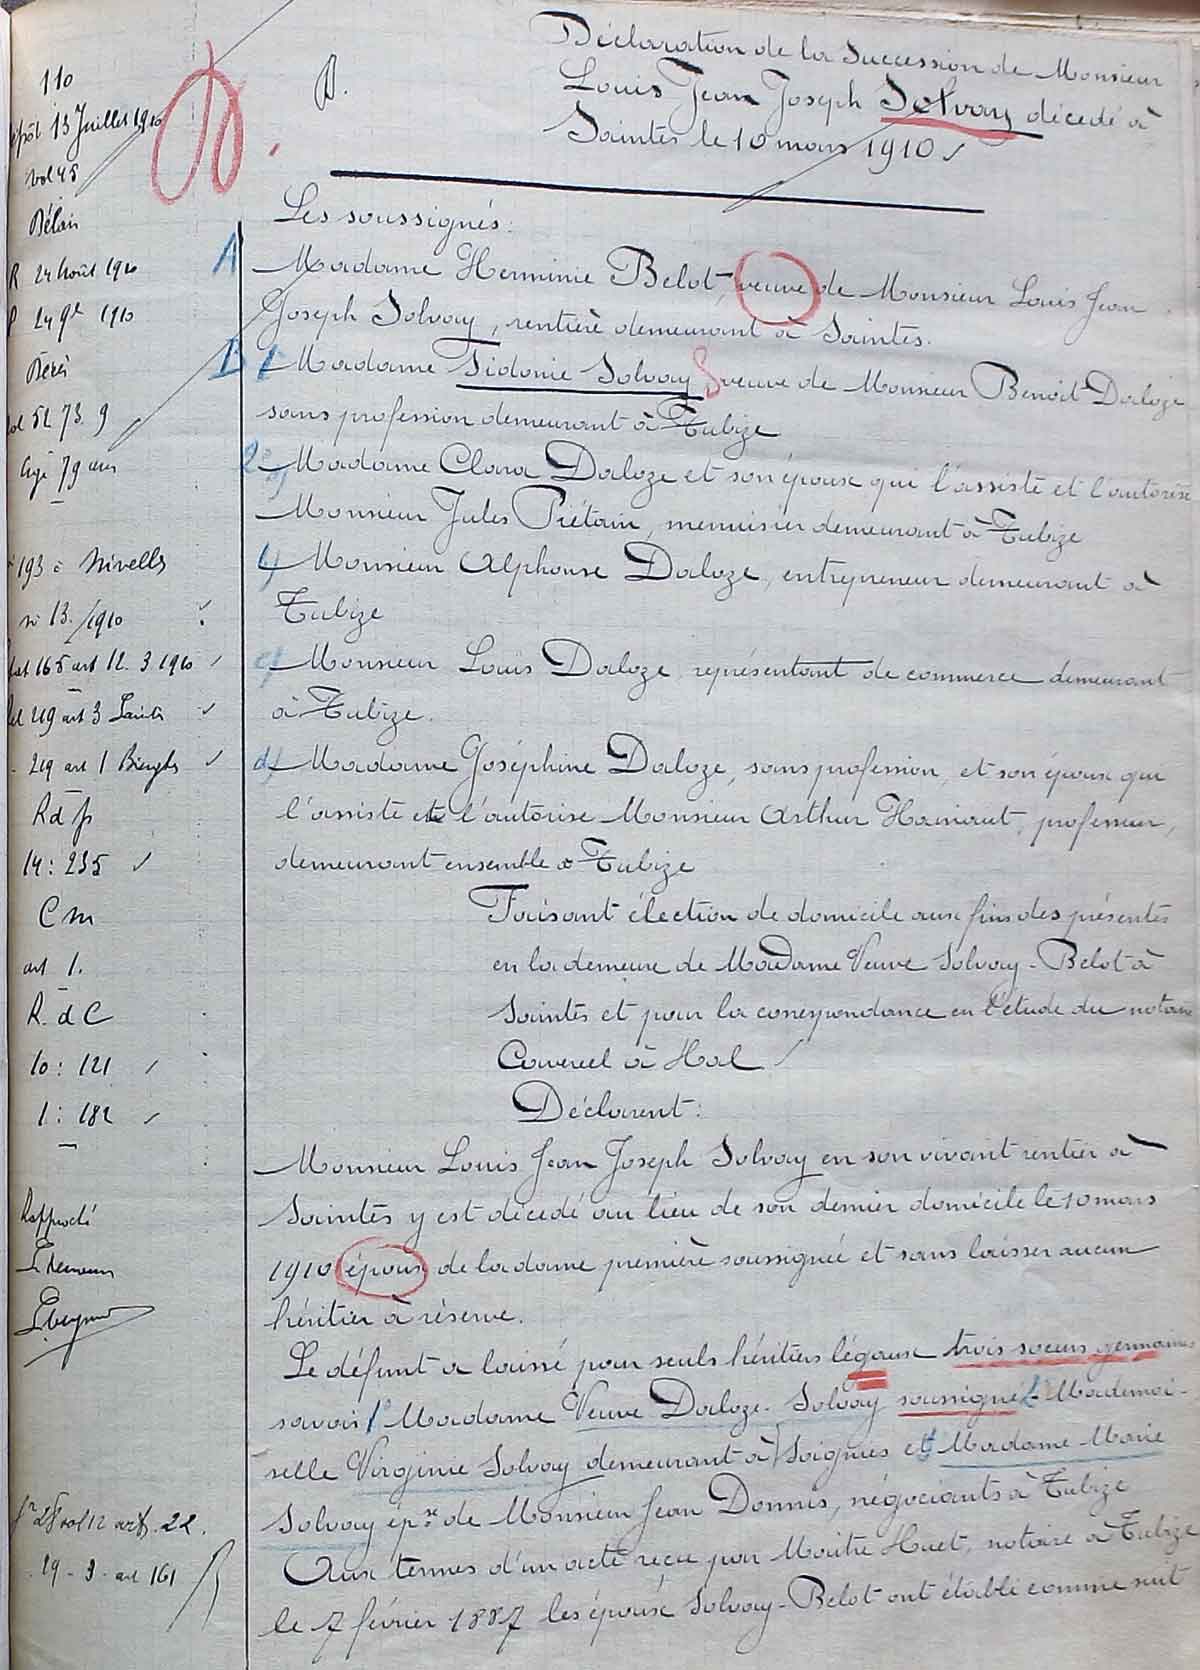 Déclaration de la Succession de Monsieur
Louis Jean Joseph Solvay décédé à
Saintes le 10 mars 1910
110
13 Juillet 1910
vol 45
Délai
R 24 Août 1910
24 9e 1910
vol 52 73. 9
Agé 79 ans
193 à Nivelles
n° 13./1910
165 art 12. 3 1910
219 art 3 Saintes
219 art 1 Bierghes
R d p
14: 235
C m
art 1.
R. d C
10: 121
1: 182
Les soussignés:
A Madame Herminie Belot, veuve de Monsieur Louis Jean
Joseph Solvay, rentière demeurant à Saintes.
B 1° Madame Sidonie Solvay veuve de Monsieur Benoit Daloze
sans profession demeurant à Tubize
2° a) Madame Clara Daloze et son époux qui l'assiste et l'autorise
Monsieur Jules Prétain, menuisier demeurant à Tubize
b) Monsieur Alphonse Daloze, entrepreneur demeurant à
Tubize
c) Monsieur Louis Daloze, représentant de commerce demeurant
à Tubize.
d) Madame Joséphine Daloze, sans profession, et son époux qui
l'assiste et l'autorise Monsieur Arthur Hainaut, professeur,
demeurant ensemble à Tubize
Faisant élection de domicile aux fins des présentes
en la demeure de Madame Veuve Solvay-Belot à
Saintes et pour la correspondance en l'étude du notaire
à Hal
Déclarent:
Monsieur Louis Jean Joseph Solvay en son vivant rentier à
Saintes y est décédé au lieu de son dernier domicile le 10 mars
1910 époux de la dame première soussignée et sans laisser aucun
héritier à réserve.
Le défunt a laissé pour seuls héritiers légaux trois soeurs germaines
savoir 1° Madame Veuve Daloze-Solvay soussignée 2° Mademoi-
selle Virginie Solvay demeurant à Soignies et Madame Marie
Solvay épse de Monsieur Jean Dommis, négociants à Tubize
Aux termes d'un acte reçu par Maître Huet, notaire à Tubize
le 7 février 1887 les époux Solvay-Belot ont établi comme suit
vol 12 art. 22.
19 - 3 - art 161